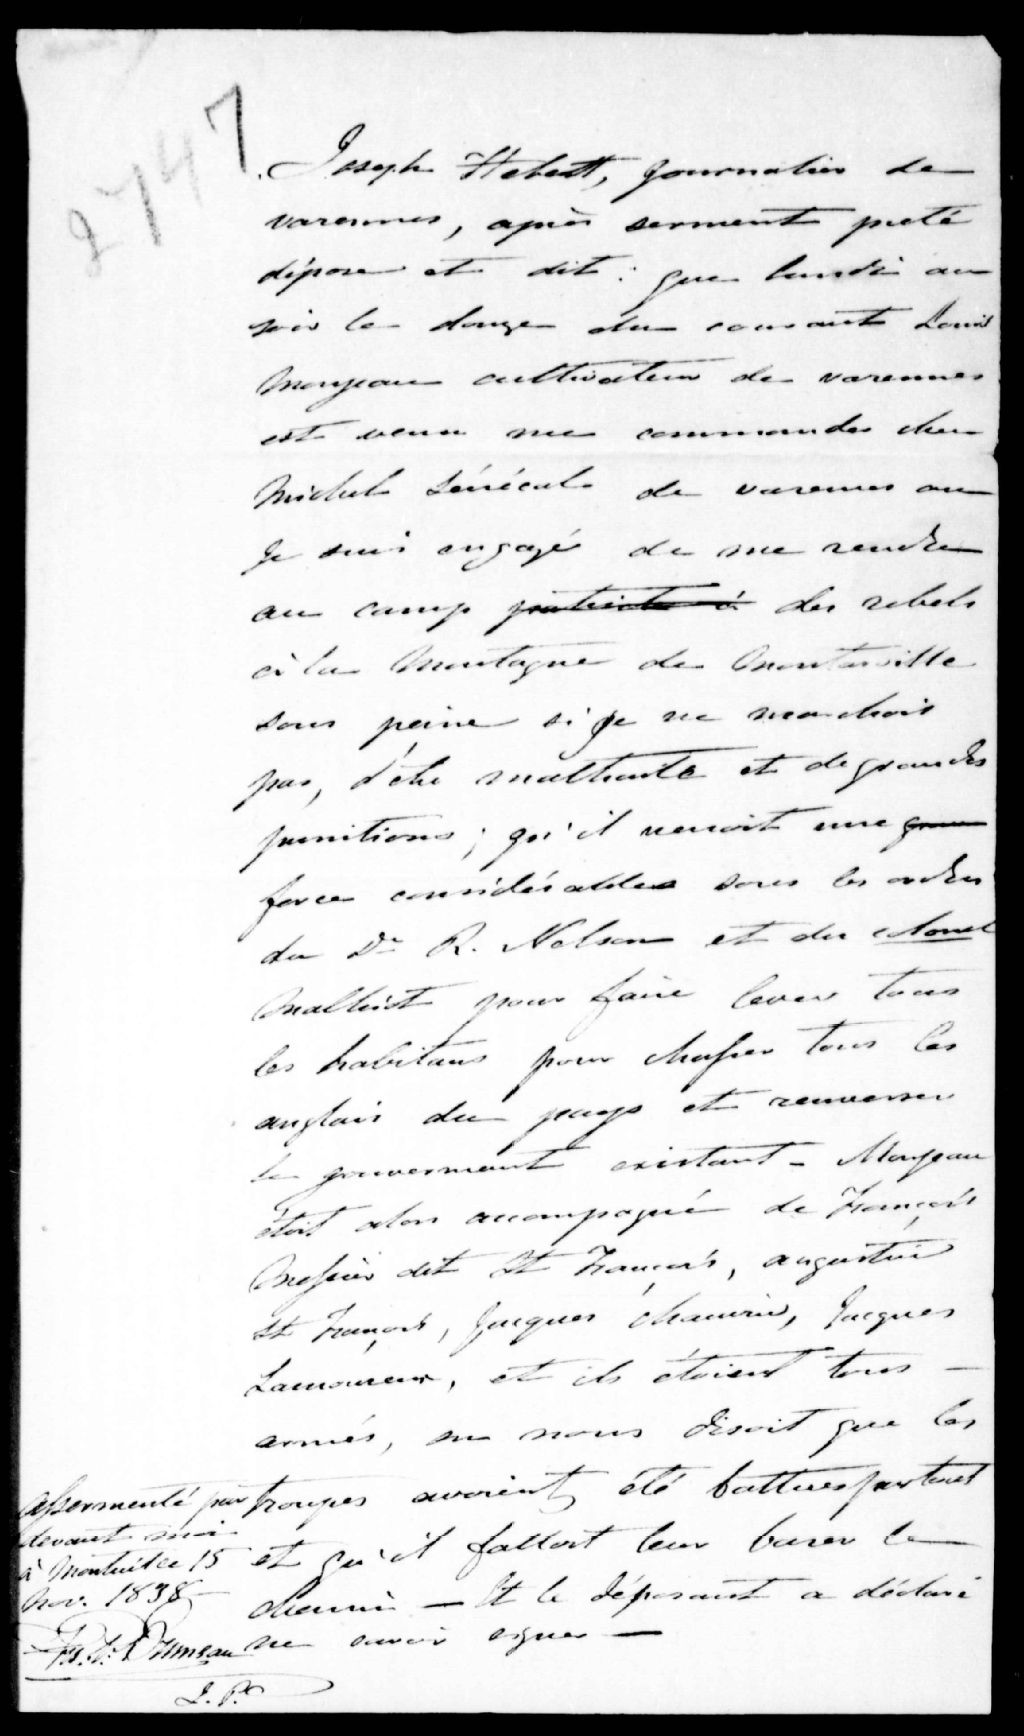 2747
Joseph Hebert, journalier de
varennes, après serment preté
dépose et dit : que lundi au
soir le douze du courant Louis
Monjeau cultivateur de varennes
est venu me commander chez
Michel Sénécal de varennes ou
Je suis engagé de me rendre
au camp patriote à des rebels
à la Montagne de Montarville
sous peine si je ne marchois
pas, d'être maltraité et de grandes
punitions ; qu'il venoit une
force considérable sous les ordres
du Dr R. Nelson et du colonel
Malhiot pour faire lever tous
les habitans pour chasser tous les
anglais du pays et renverser
le gouvernement existant - Monjeau
étoit alors accompagné de François
Messier dit St François, augustin
St François, Jacques chauvin, Jacques
Lamoureux, et ils étoient tous -
armés, on nous disoit que les
troupes avoient été battues partout
et qu'il falloit leur barer le
chemin - Et le déposant a déclaré
ne savoir signer -
assermenté par
devant moi
à Montréal ce 15
Nov. 1838
J. P.